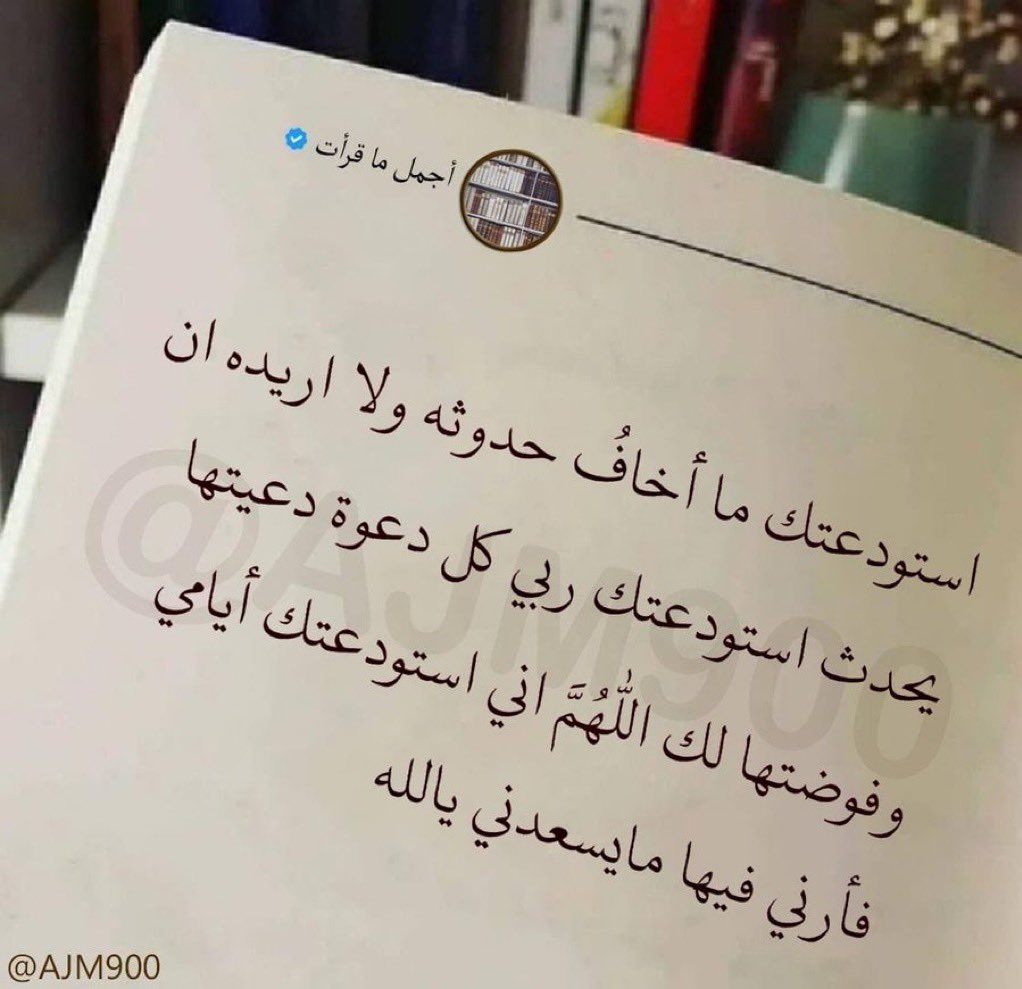 أجمل ما قرأت
استودعتك ما أخافُ حدوثه ولا اريده ان
يحدث استودعتك ربي كل دعوة دعيتها
وفوضتها لك اللّٰهُمَّ اني استودعتك أيامي
فأرني فيها مايسعدني يالله
@AJM900
@AJM900